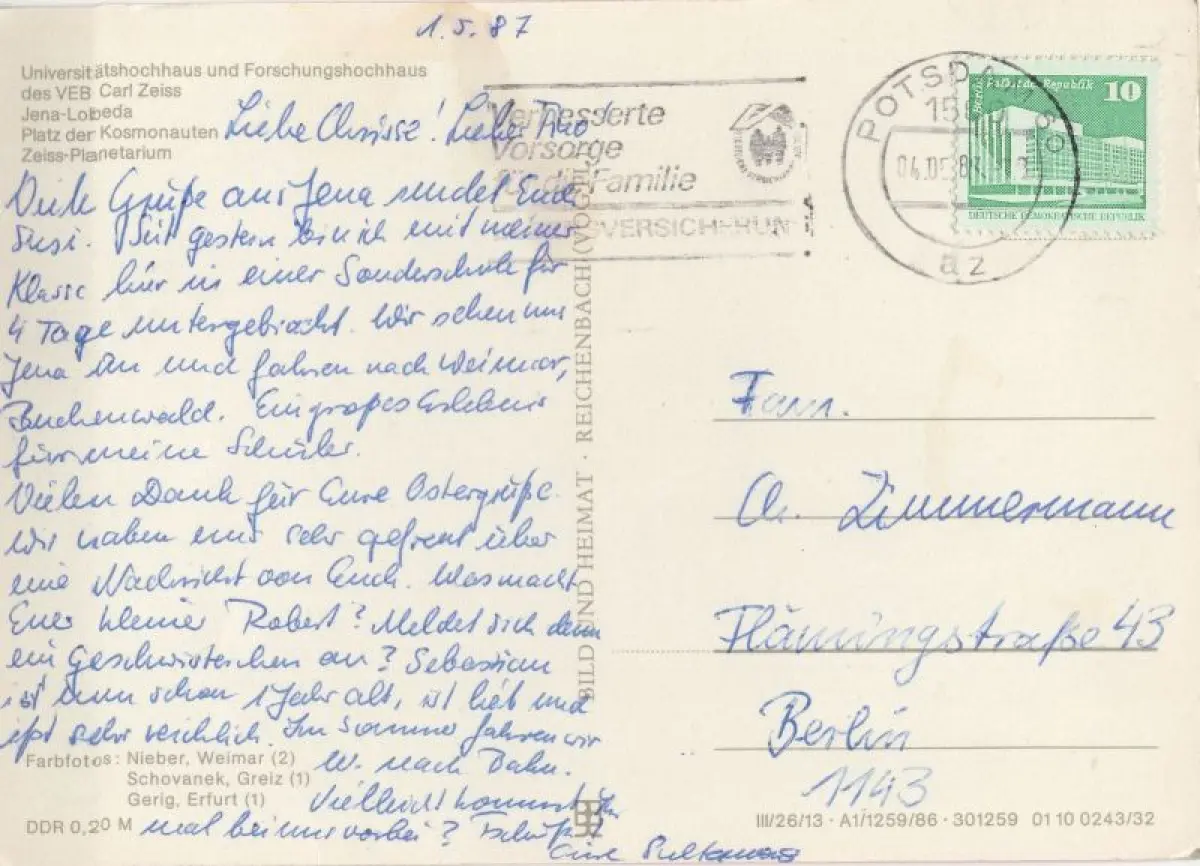 1.5.87
Universitätshochhaus und Forschungshochhaus
des VEB Carl Zeiss
Jena-Lobeda
Platz der Kosmonauten
Zeiss-Planetarium
Liebe Chrisse! Lieber Tino
Viele Grüße aus Jena sendet Euch
Susi. Seit gestern bin ich mit meiner
Klasse hier in einer Sonderschule für
4 Tage untergebracht. Wir sehen uns
Jena an und fahren nach Weimar,
Buchenwald. Ein großes Erlebnis
für meine Schüler.
Vielen Dank für Eure Ostergrüße.
Wir haben uns sehr gefreut über
eine Nachricht von Euch. Was macht
Euer kleiner Robert? Meldet sich denn
ein Geschwisterchen an? Sebastian
ist nun schon 1 Jahr alt, ist lieb und
ißt sehr reichlich. Im Sommer fahren wir
w. nach Dahn.
Vielleicht kommt Ihr
mal bei uns vorbei? Tschüß
Eure
Farbfotos: Nieber, Weimar (2)
Schovanek, Greiz (1)
Gerig, Erfurt (1)
DDR 0,20 M
BILD UND HEIMAT · REICHENBACH (VOGTL)
Verbesserte
Vorsorge
für die Familie
VERSICHERUN
POTSDAM
az
Berlin Palast der Republik
10
DEUTSCHE DEMOKRATISCHE REPUBLIK
Fam.
Ch. Zimmermann
Flämingstraße 43
Berlin
1143
III/26/13 · A1/1259/86 · 301259 01 10 0243/32